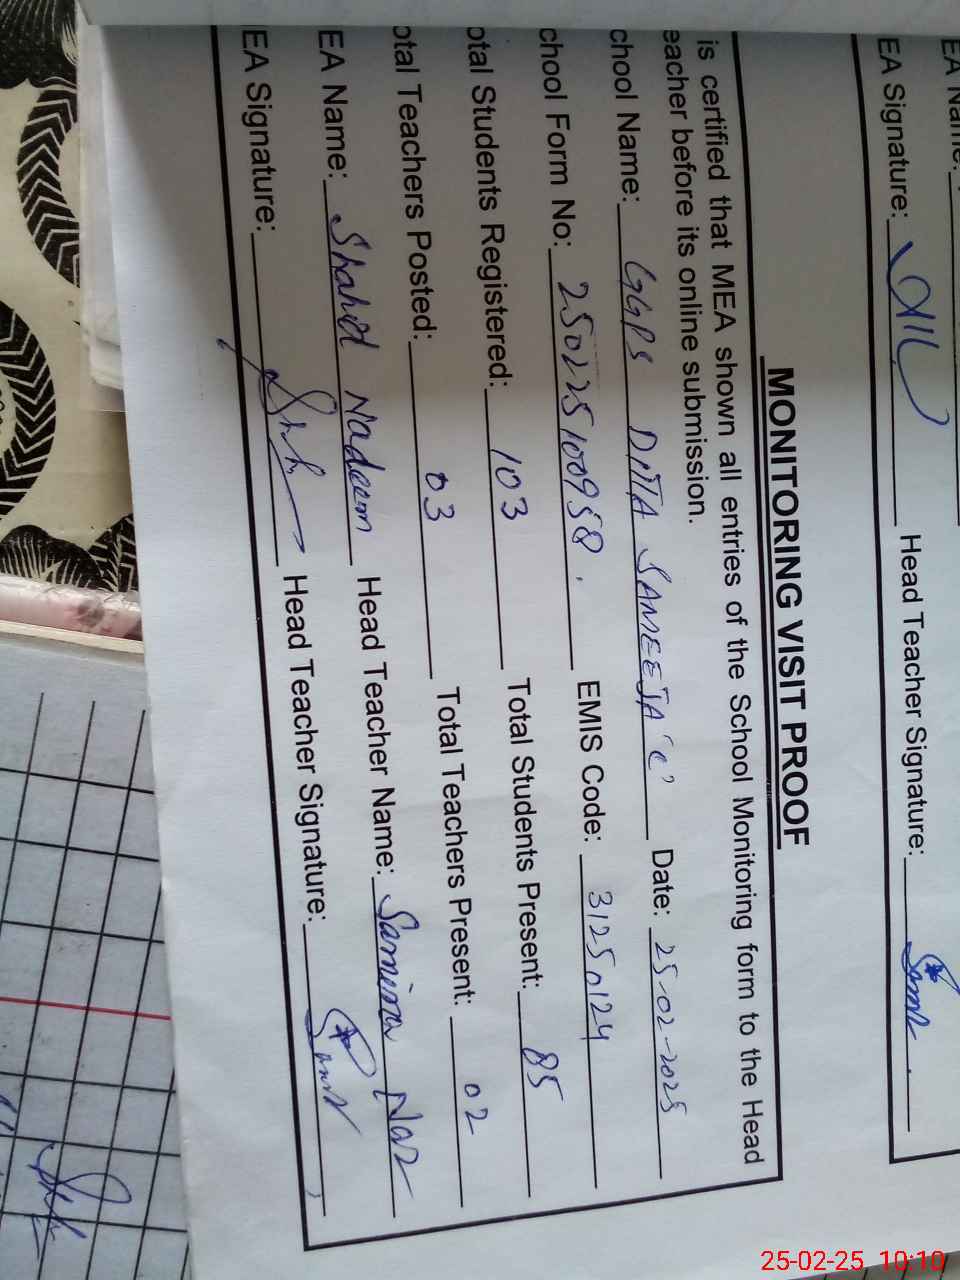 EA Name:
EA Signature: Head Teacher Signature:
MONITORING VISIT PROOF
is certified that MEA shown all entries of the School Monitoring form to the Head
eacher before its online submission.
chool Name: GGPS DITTA SAMEEJA 'C' Date: 25-02-2025
chool Form No: 250225100958. EMIS Code: 31250124
otal Students Registered: 103 Total Students Present: 85
otal Teachers Posted: 03 Total Teachers Present: 02
EA Name: Shahid Nadeem Head Teacher Name: Samina Naz
EA Signature: Head Teacher Signature:
25-02-25, 10:10